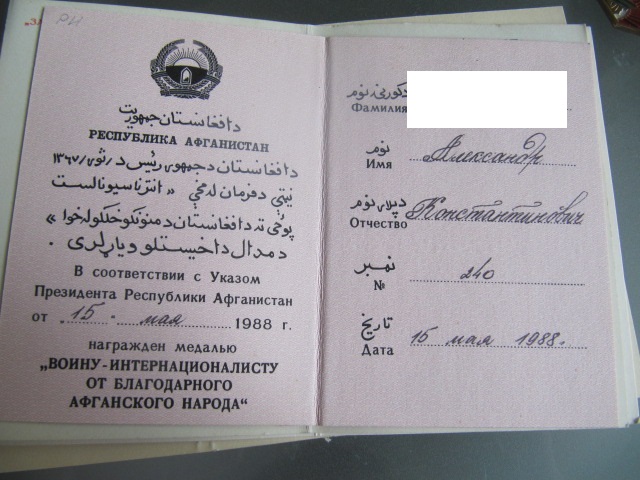 РИ
دافغانستان جمهوریت
РЕСПУБЛИКА АФГАНИСТАН
دافغانستان دجمهوری رئیس د/ثور/۱۳۶۷
نیټې دفرمان له مخې «انترناسیونالست
پوځي ته دافغانستان دمنونکو خلکو له خوا»
دمدال داخیستلو ویاړلری .
В соответствии с Указом
Президента Республики Афганистан
от „15 - мая 1988 г.
награжден медалью
„ВОИНУ-ИНТЕРНАЦИОНАЛИСТУ
ОТ БЛАГОДАРНОГО
АФГАНСКОГО НАРОДА“
دکورنی نوم
Фамилия
نوم
Имя Александр
دپلار نوم
Отчество Константинович
نمبر
№ 240
تاریخ
Дата 15 мая 1988.